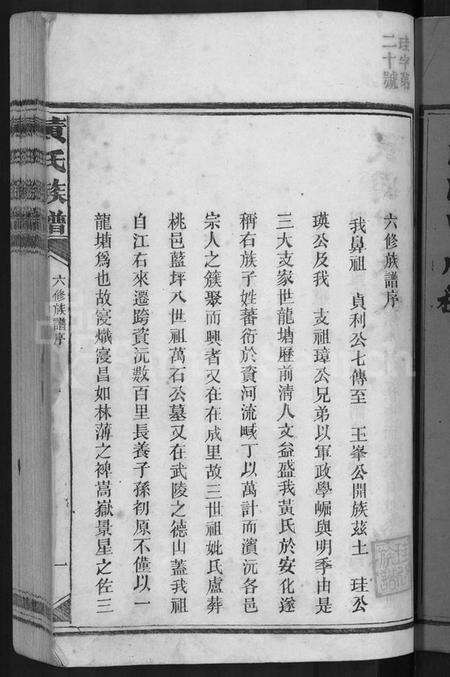 珪字第
二十號
六修族譜序
我鼻祖　貞利公七傳至　玉峯公開族茲土　珪公
瑛公及我　支祖璋公兄弟以軍政學崛興明季由是
三大支家世龍塘歷前清人文益盛我黃氏於安化遂
稱右族子姓蕃衍於資河流域丁以萬計而濱沅各邑
宗人之簇聚而興者又在在成里故三世祖妣氏盧葬
桃邑藍坪八世祖萬石公墓又在武陵之德山蓋我祖
自江右來遷跨資沅數百里長養子孫初原不僅以一
龍塘爲也故寖熾寖昌如林薄之裨嵩嶽景星之佐三
黃氏族譜
六修族譜序
一